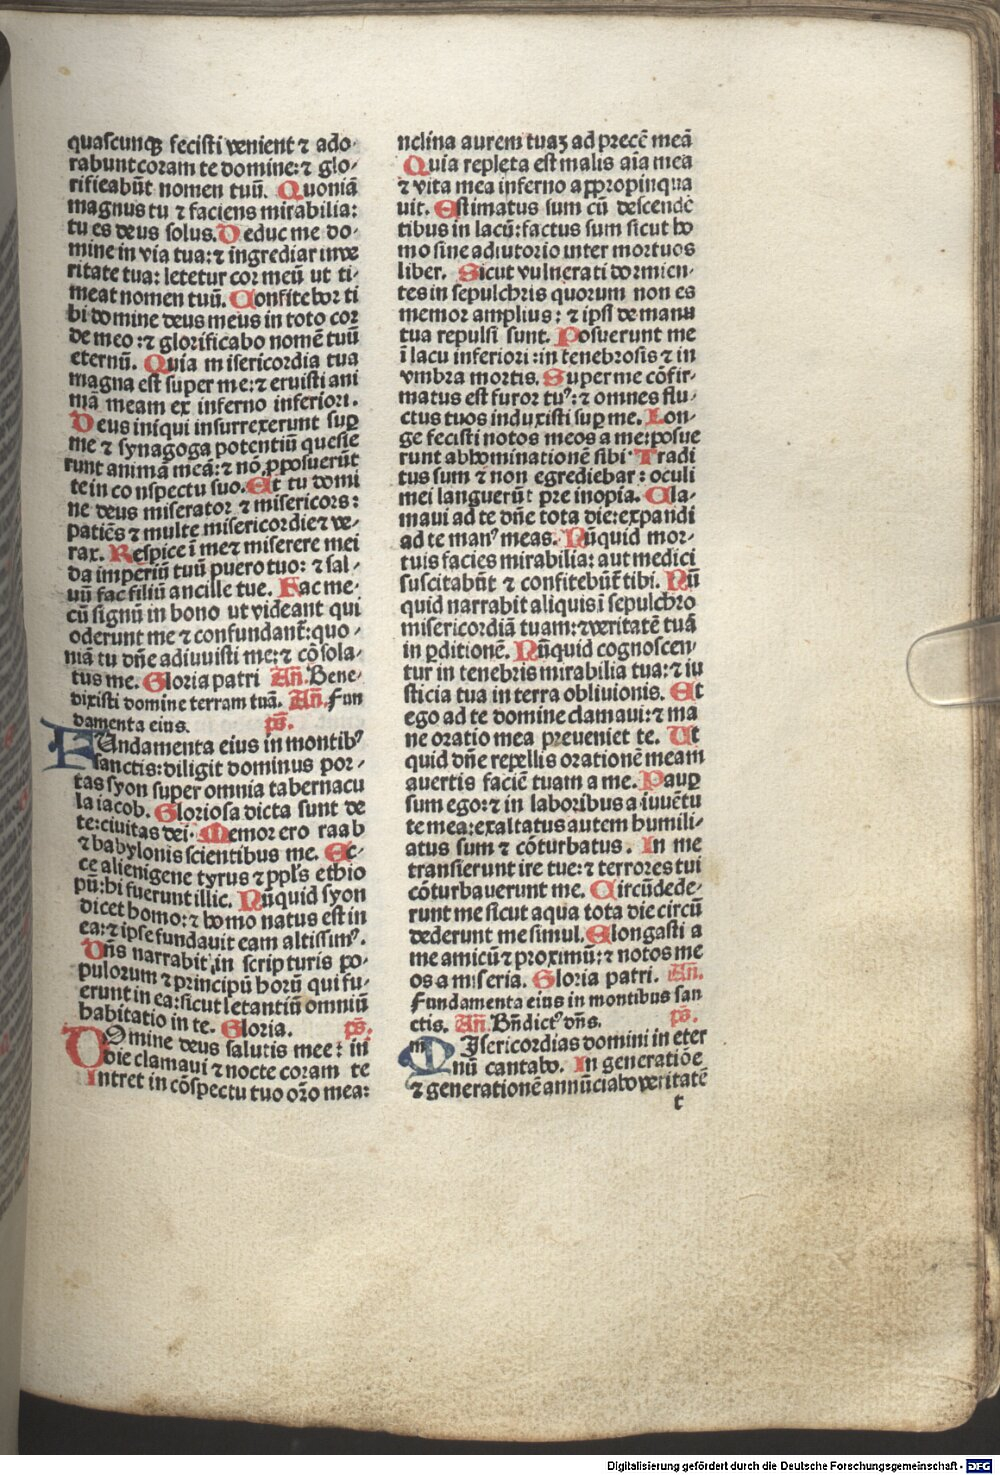 quascunqʒ fecisti venient ⁊ ado-
rabunt coram te domine: ⁊ glo-
rificabūt nomen tuū. Quoniā
magnus tu ⁊ faciens mirabilia:
tu es deus solus. Deduc me do-
mine in via tua: ⁊ ingrediar in ve
ritate tua: letetur cor meū ut ti-
meat nomen tuū. Confitebor ti
bi domine deus meus in toto cor
de meo: ⁊ glorificabo nomē tuū
eternū. Quia misericordia tua
magna est super me: ⁊ eruisti ani
mā meam ex inferno inferiori.
Deus iniqui insurrexerunt suꝑ
me ⁊ synagoga potentiū quesie
runt animā meā: ⁊ nō ꝓposuerūt
te in conspectu suo. Et tu domi
ne deus miserator ⁊ misericors:
patiēs ⁊ multe misericordie ⁊ ve-
rax. Respice ī me ⁊ miserere mei
da imperiū tuū puero tuo: ⁊ sal-
uū fac filiū ancille tue. Fac me-
cū signū in bono ut videant qui
oderunt me ⁊ confundant̄: quo-
niā tu dn̄e adiuuisti me: ⁊ cōsola-
tus me. Gloria patri An̄. Bene-
dixisti domine terram tuā. An̄. Fun
damenta eius. ps̄.
FUndamenta eius in montibꝰ
sanctis: diligit dominus por-
tas syon super omnia tabernacu
la iacob. Gloriosa dicta sunt de
te: ciuitas dei. Memor ero raab
⁊ babylonis scientibus me. Ec-
ce alienigene tyrus ⁊ ppl's ethio
pū: hi fuerunt illic. Nūquid syon
dicet homo: ⁊ homo natus est in
ea: ⁊ ipse fundauit eam altissimꝰ.
Dn̄s narrabit in scripturis po-
pulorum ⁊ principū horū qui fu-
erunt in ea: sicut letantiū omniū
habitatio in te. Gloria. ps̄.
DOmine deus salutis mee: in
die clamaui ⁊ nocte coram te
Intret in cōspectu tuo or̄o mea:
nclina aurem tuaʒ ad precē meā
Quia repleta est malis aīa mea
⁊ vita mea inferno appropinqua
uit. Estimatus sum cū descendē
tibus in lacū: factus sum sicut ho
mo sine adiutorio inter mortuos
liber. Sicut vulnerati dormien-
tes in sepulchris quorum non es
memor amplius: ⁊ ipsi de manu
tua repulsi sunt. Posuerunt me
ī lacu inferiori: in tenebrosis ⁊ in
vmbra mortis. Super me cōfir-
matus est furor tuꝰ: ⁊ omnes flu-
ctus tuos induxisti suꝑ me. Lon-
ge fecisti notos meos a me: posue
runt abhominationē sibi. Tradi
tus sum ⁊ non egrediebar: oculi
mei languerūt pre inopia. Cla-
maui ad te dn̄e tota die: expandi
ad te manꝰ meas. Nūquid mor-
tuis facies mirabilia: aut medici
suscitabūt ⁊ confitebūt tibi. Nū
quid narrabit aliquis ī sepulchro
misericordiā tuam: ⁊ veritatē tuā
in ꝑditionē. Nūquid cognoscen
tur in tenebris mirabilia tua: ⁊ iu
sticia tua in terra obliuionis. Et
ego ad te domine clamaui: ⁊ ma
ne oratio mea preueniet te. Ut
quid dn̄e repellis orationē meam
auertis faciē tuam a me. Pauꝑ
sum ego: ⁊ in laboribus a iuuētu
te mea: exaltatus autem humili-
atus sum ⁊ cōturbatus. In me
transierunt ire tue: ⁊ terrores tui
cōturbauerunt me. Circūdede-
runt me sicut aqua tota die circū
dederunt me simul. Elongasti a
me amicū ⁊ proximū: ⁊ notos me
os a miseria. Gloria patri. An̄.
Fundamenta eius in montibus san
ctis. An̄. Bn̄dictꝰ dn̄s. ps̄.
MIsericordias domini in eter
nū cantabo. In generatiōe
⁊ generationē annūciabo veritatē
t
Digitalisierung gefördert durch die Deutsche Forschungsgemeinschaft - DFG